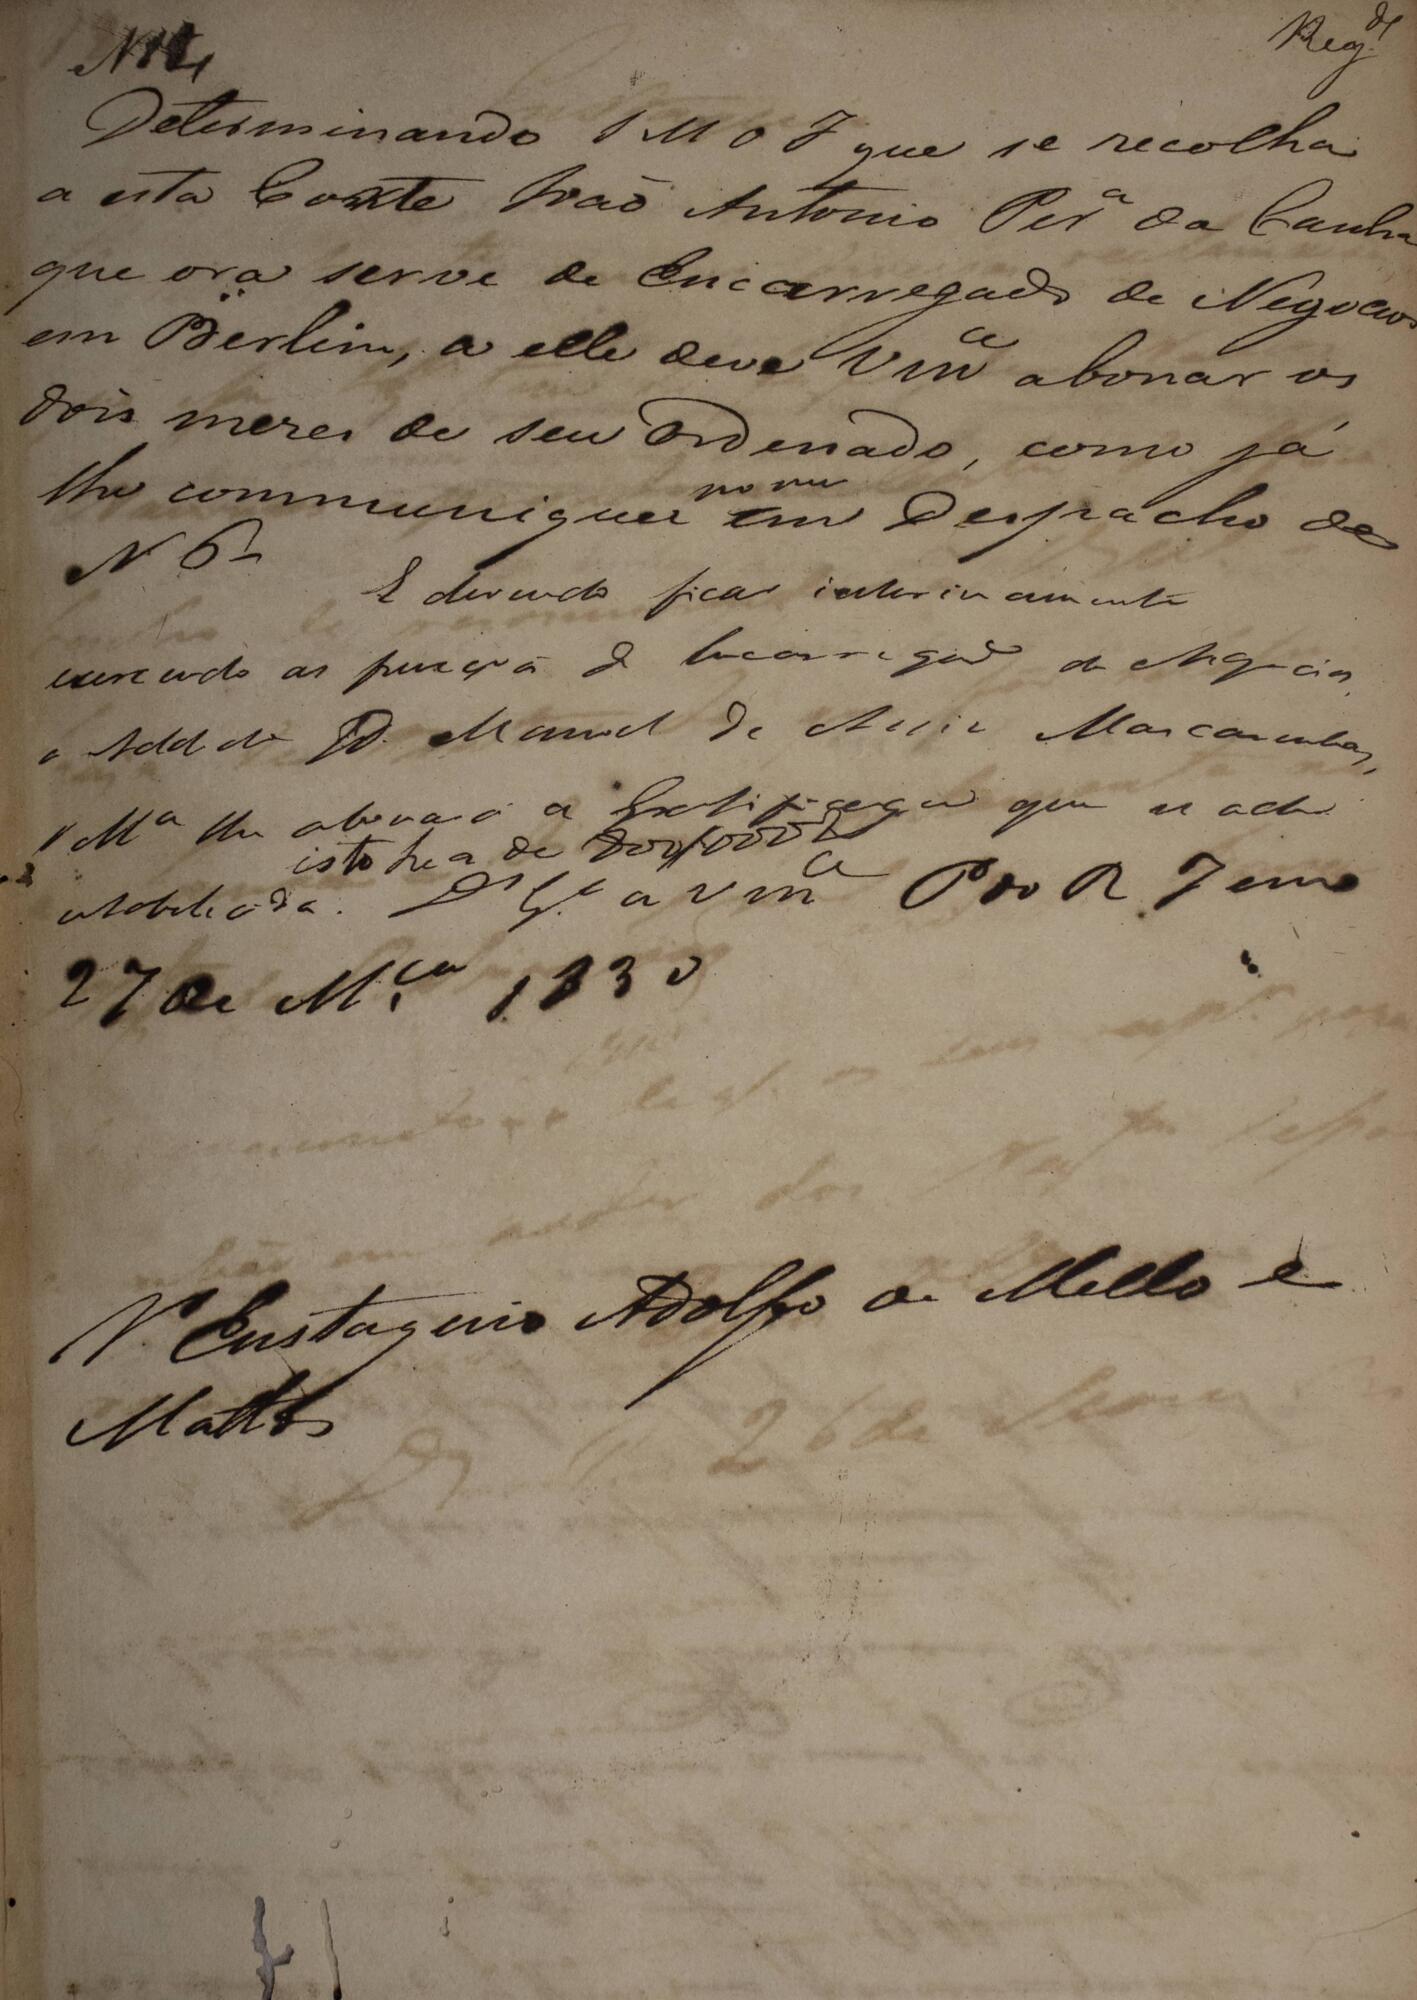 Reg.do
N 14
Determinando S M O I que se recolha
a esta Corte João Antonio Per.a da Cunha
que ora serve de Encarregado de Negocios
em Berlim, a elle deve Vm.ce abonar os
dois mezes de seu Ordenado, como já
lhe communiquei no meu Despacho de
N 6
E devendo ficar interinamente
exercendo as funções de Encarregado de Negocios,
o Addido D. Manoel de Assis Mascarenhas,
V M.ce lhe abonará a Gratificação que se acha
isto he a de
estabelecida. D.s G.e a Vm.ce P do R J em
27 de M.ço 1830
Eustaquio Adolfo de Mello e
Mattos